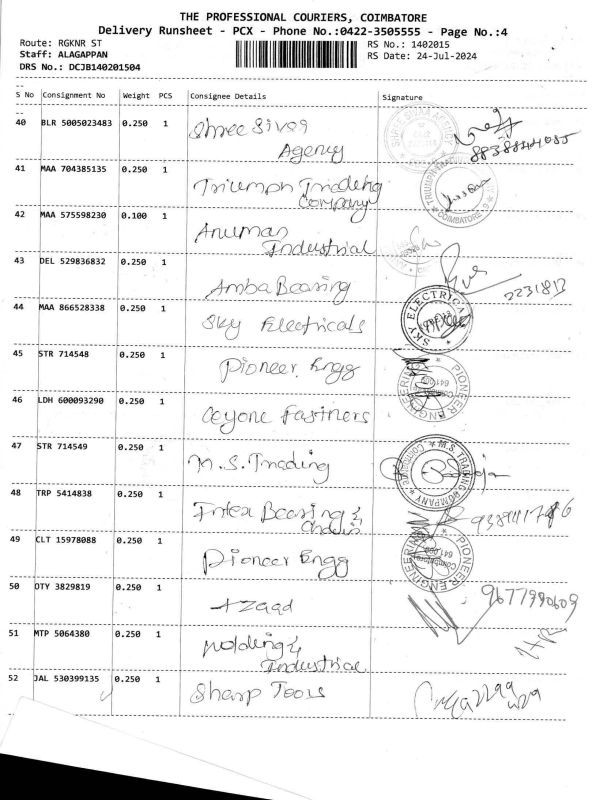 THE PROFESSIONAL COURIERS, COIMBATORE
Delivery Runsheet - PCX - Phone No.:0422-3505555 - Page No.:4
Route: RGKNR ST
RS No.: 1402015
Staff: ALAGAPPAN
RS Date: 24-Jul-2024
DRS No.: DCJB140201504
S No Consignment No Weight PCS Consignee Details Signature
40 BLR 5005023483 0.250 1 Shree Sivas
Agency
41 MAA 704385135 0.250 1 Triumph Trading
Company
42 MAA 575598230 0.100 1 Anuman
Industrial
43 DEL 529836832 0.250 1
Amba Bearing 2231813
44 MAA 866528338 0.250 1 Sky Electricals
SKY ELECTRICAL
45 STR 714548 0.250 1 Pioneer Engg
PIONEER ENGINEERING
46 LDH 600093290 0.250 1 Ceyone Fastners
47 STR 714549 0.250 1 M.S. Trading
M.S. TRADING COMPANY
48 TRP 5414838 0.250 1 Intex Bearing &
49 CLT 15978088 0.250 1 Pioneer Engg
PIONEER ENGINEERING
50 OTY 3829819 0.250 1 Azaad
9677990609
51 MTP 5064380 0.250 1 Molding &
Industrial
52 JAL 530399135 0.250 1 Sharp Tools